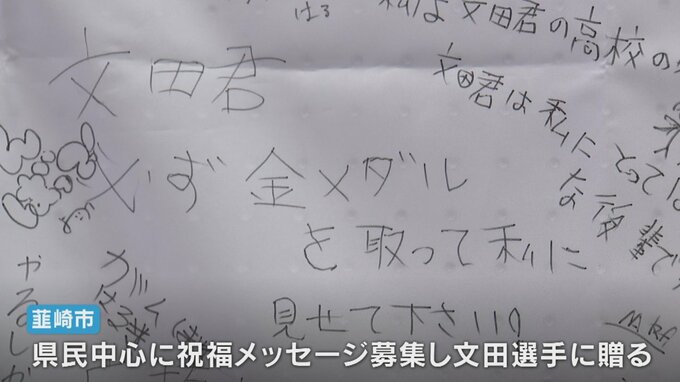 はる
私は文田君の高校の
文田君は私に
とっては
な
輩で
文田君
必ず金メダル
を取って私に
見せて下さい!!
やるしか
韮崎市
県民中心に祝福メッセージ募集し文田選手に贈る